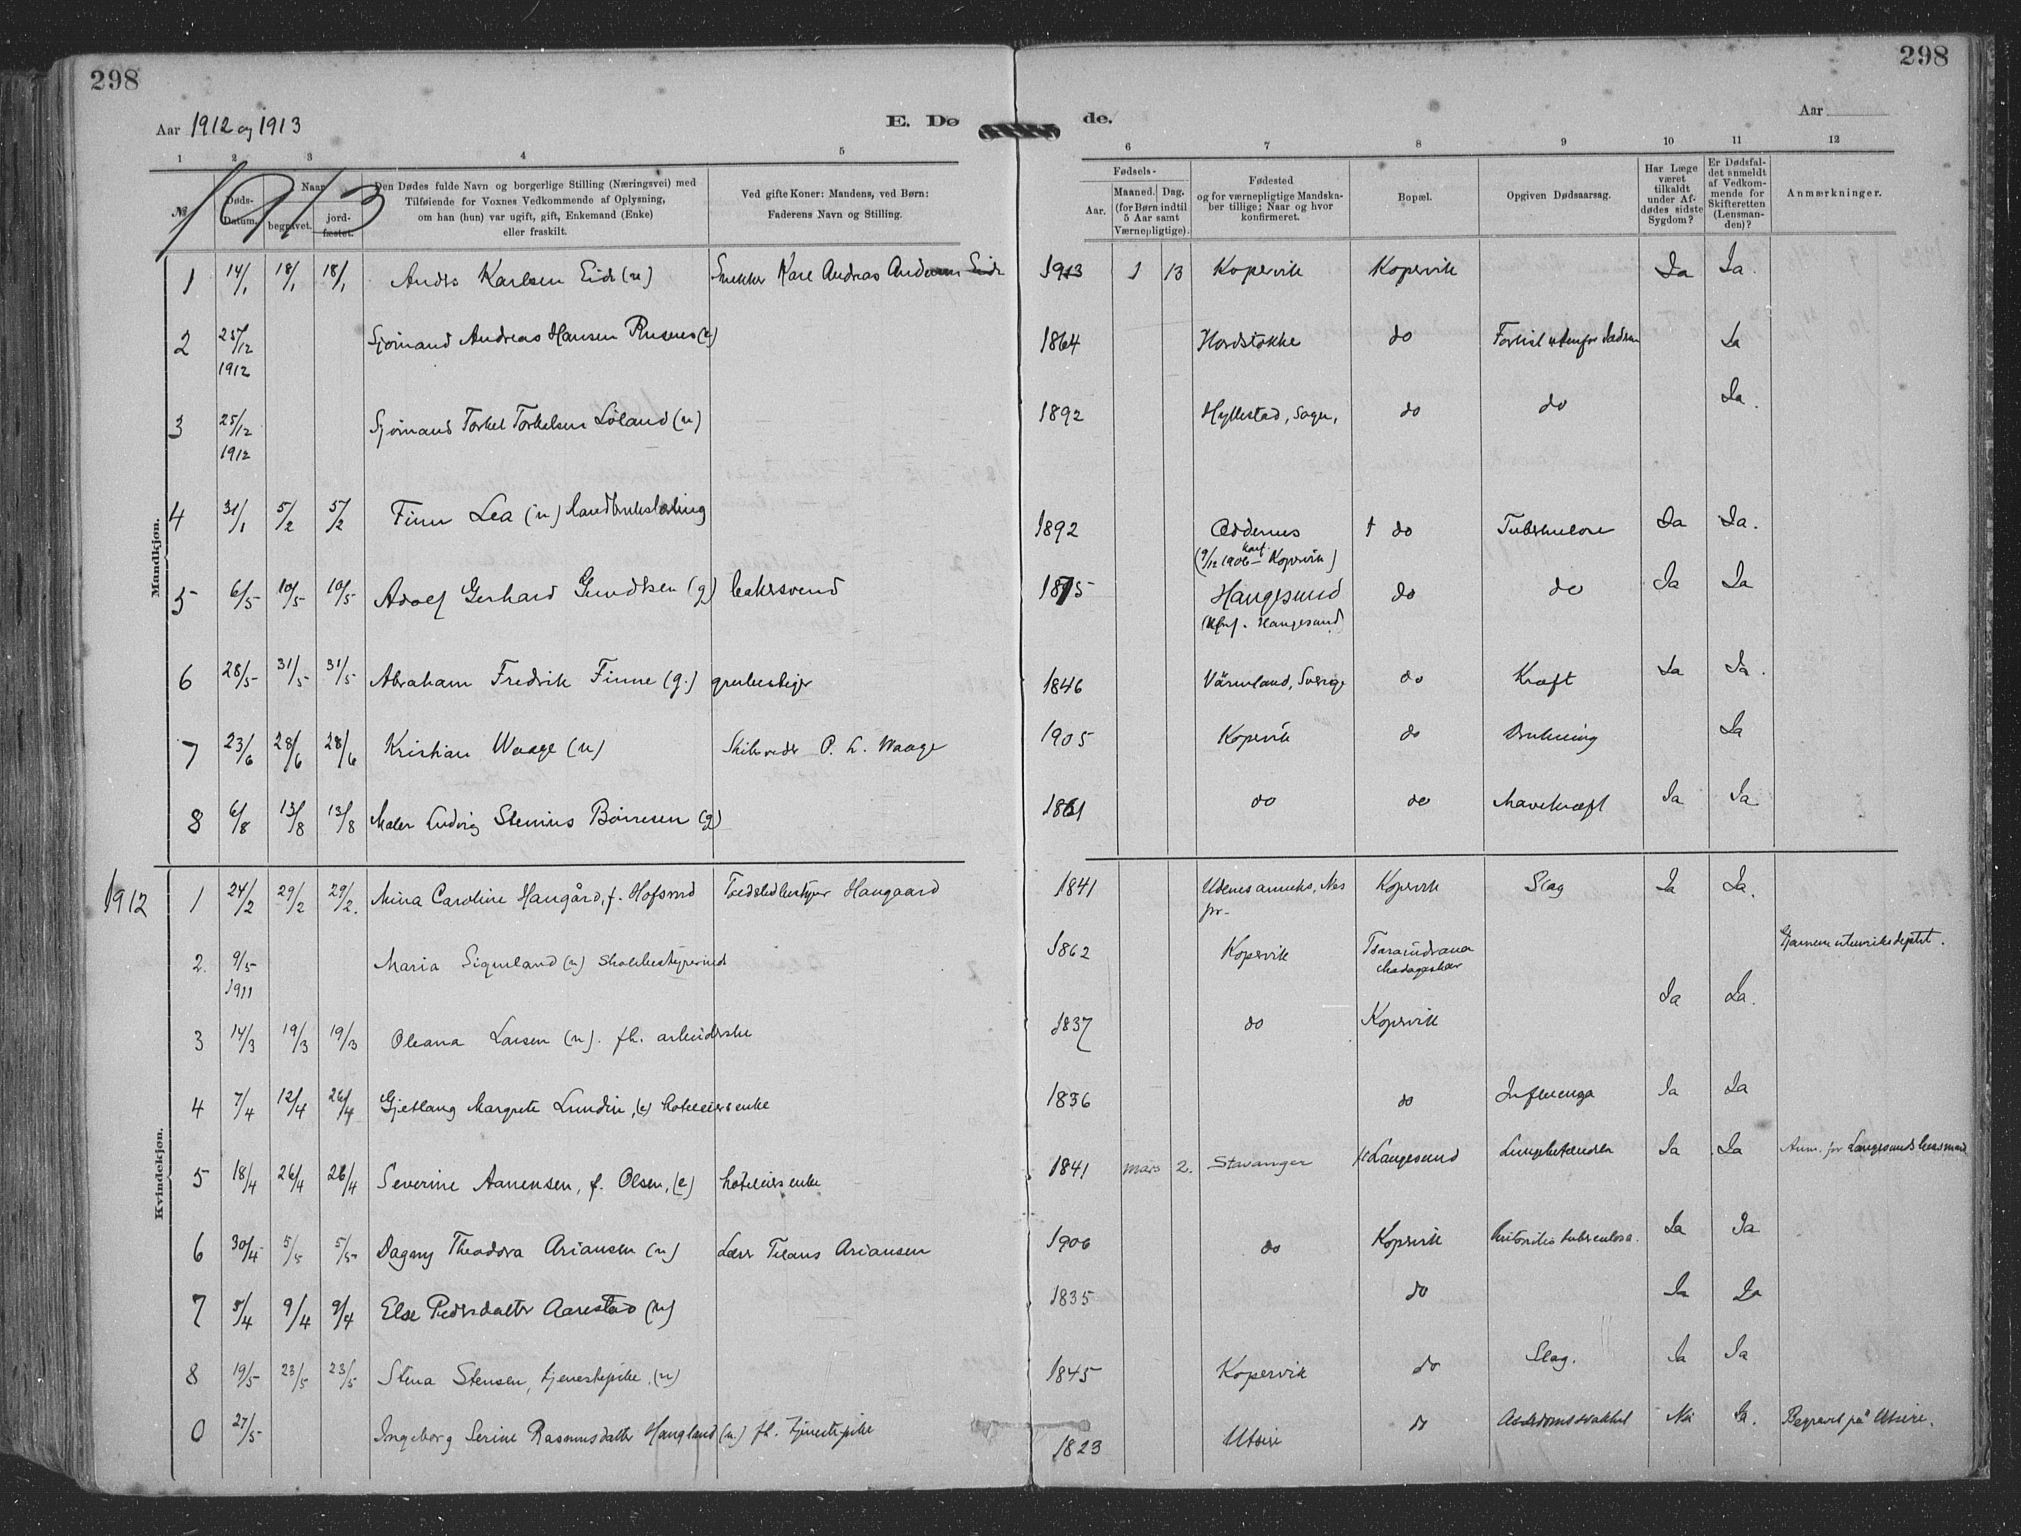 298
298
Aar 1912 og 1913
E. Dø
de.
Aar
1 2 3 4 5 6 7 8 9 10 11 12
1913
№
Døds-Datum.
Naar
begravet.
jord-fæstet.
Den Dødes fulde Navn og borgerlige Stilling (Næringsvei) med
Tilføiende for Voxnes Vedkommende af Oplysning,
om han (hun) var ugift, gift, Enkemand (Enke)
eller fraskilt.
Ved gifte Koner: Mandens, ved Børn:
Faderens Navn og Stilling.
Fødsels-
Aar.
Maaned. Dag.
(for Børn indtil
5 Aar samt
Værnepligtige).
Fødested
og for værnepligtige Mandska-
ber tillige; Naar og hvor
konfirmeret.
Bopæl.
Opgiven Dødsaarsag.
Har Læge
været
tilkaldt
under Af-
dødes sidste
Sygdom?
Er Dødsfal-
det anmeldt
af Vedkom-
mende for
Skifteretten
(Lensman-
den)?
Anmærkninger.
Mandkjøn.
1 14/1 18/1 18/1 Anders Karlsen Eide (u) Snekker Karl Andreas Andersen Eide 1913 1 13 Kopervik Kopervik Ja Ja.
2 25/12 1912 Sjømand Andreas Hansen (g) 1864 do Forlist utenfor Ja
3 25/12 1912 Sjømand Torkel Torkelsen Løland (u) 1892 Hyllestad, Sogn, do do Ja.
4 31/1 5/2 5/2 Finn Lea (u) 1892 Oddernes † do Tuberkulose Ja Ja.
(9/12 1906 konf. Kopervik)
5 6/5 10/5 10/5 Adolf Gerhard Gundersen (g) bakersvend 1875 Haugesund do do Ja Ja
(Konf. Haugesund)
6 28/5 31/5 31/5 Abraham Fredrik Finne (g.) grubestiger 1846 Värmland, Sverige do Kræft Ja Ja.
7 23/6 28/6 28/6 Kristian Waage (u) Skibsreder P. L. Waage 1905 Kopervik do Drukning Ja
8 6/8 13/8 13/8 Maler Ludvig Stenius Børresen (g) 1861 do do Mavekræft Ja Ja
1912
Kvindekjøn.
1 24/2 29/2 29/2. Mina Caroline Haugård, f. Hofsrud Haugaard 1841 Udenes anneks, Nes pr. Kopervik Slag Ja Ja.
2. 9/5 1911 Maria Sigveland (u) Skolebestyrerinde 1862 Kopervik Tsaraindrana Madagaskar Gjennem utenriksdeptet.
3 14/3 19/3 19/3 Oleana Larsen (u). fh. arbeiderske 1837 do Kopervik Ja Ja.
4 7/4 12/4 26/4 Gjetlaug Margrete Lundin, (e) hoteleiers enke 1836 do Influenza Ja Ja
5 18/4 26/4 26/4 Severine Aanensen, f. Olsen, (e) hoteleiers enke 1841 mars 2. Stavanger Langesund Lungebetændelse Ja Ja Anm. for Langesunds lensmand
6 30/4 5/5 5/5 Dagny Theodora Ariansen (u) Ariansen 1906 do Kopervik Peritonitis tuberculosa. Ja Ja
7 5/4 9/4 9/4 Else Pedersdatter Aarestad (u) 1835 do Ja Ja
8 19/5 23/5 23/5 Stena Stensen, tjenestepike. (u) 1845 Kopervik do Slag. Ja Ja
0 27/5 Ingeborg Serine Rasmusdatter Haugland (u.) fh. tjenestepike 1823 Utsire do Alderdomssvakhet Nei Ja. Begravet på Utsire.